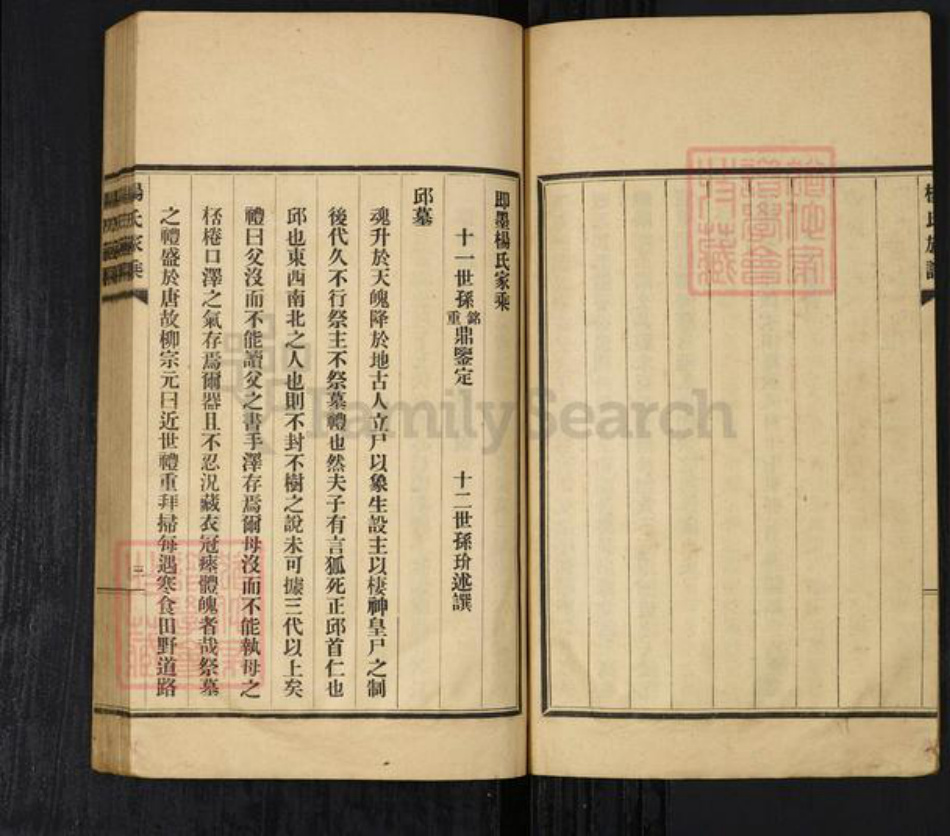 即墨楊氏家乘
十一世孫銘重鼎鑒定 十二世孫玠述譔
邱墓
魂升於天魄降於地古人立尸以象生設主以棲神皇尸之制
後代久不行祭主不祭墓禮也然夫子有言狐死正邱首仁也
邱也東西南北之人也則不封不樹之說未可據三代以上矣
禮曰父沒而不能讀父之書手澤存焉爾母沒而不能執母之
桮棬口澤之氣存焉爾器且不忍況藏衣冠瘞體魄者哉祭墓
之禮盛於唐故柳宗元曰近世禮重拜掃每遇寒食田野道路
楊氏家乘
二
FamilySearch